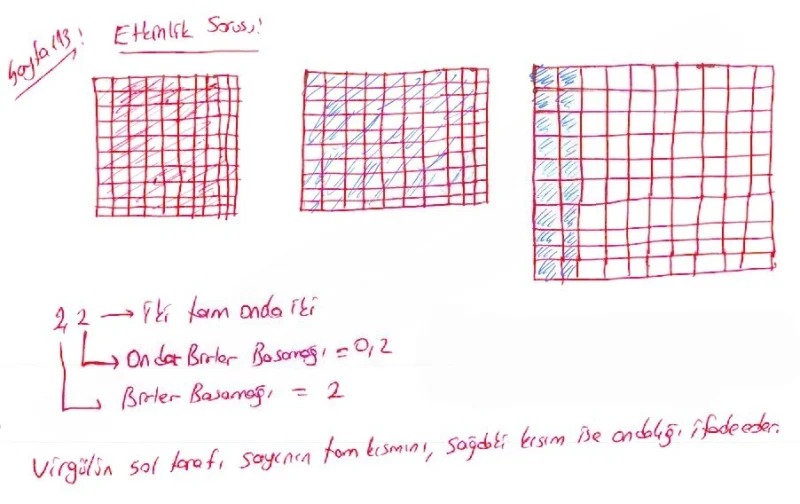 Sayfa 113!
Etkinlik Sorusu!
2,2 → İki tam onda iki
Onda Birler Basamağı = 0,2
Birler Basamağı = 2
Virgülün sol tarafı sayının tam kısmını, sağdaki kısım ise ondalığı ifade eder.